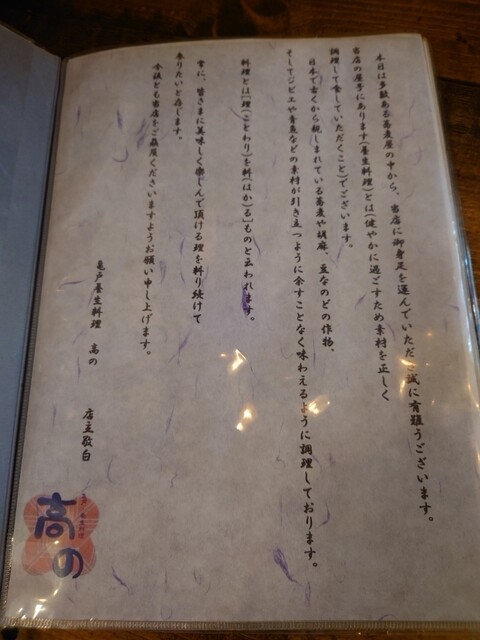 本日は多数ある蕎麦屋の中から、当店に御身足を運んでいただき誠に有難うございます。
当店の屋号にあります(養生料理)とは(健やかに過ごすため素材を正しく
調理して食していただくこと)でございます。
日本で古くから親しまれている蕎麦や胡麻、豆などの作物、
そしてジビエや青魚などの素材が引き立つように余すことなく味わえるように調理しております。
料理とは「理(ことわり)を料(はか)る」ものと云われます。
常に、皆さまに美味しく楽しんで頂ける理を料り続けて
参りたいと存じます。
今後とも当店をご贔屓くださいますようお願い申し上げます。
亀戸養生料理 高の
店主敬白
高の